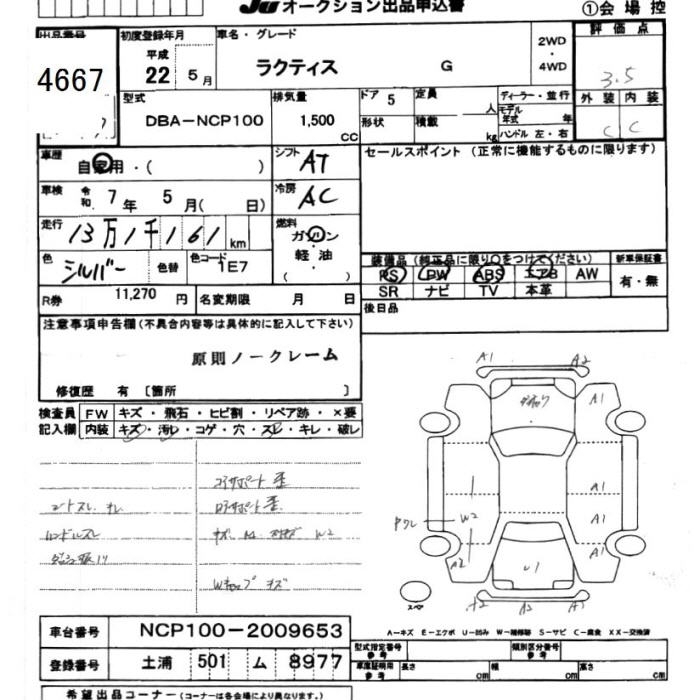 JU オークション出品申込書
①会場控
出品番号
4667
初度登録年月
平成
22 5月
車名・グレード
ラクティス G
2WD
・
4WD
評価点
3.5
外装 内装
C C
型式
DBA-NCP100
排気量
1,500
cc
ドア 5
形状
定員 人
積載 kg
ディーラー・並行
モデル年式 年
ハンドル 左・右
車歴
自家用・( )
シフト
AT
セールスポイント (正常に機能するものに限ります)
車検 令和 7年 5月( 日)
冷房
AC
走行
13万1千161km
燃料
ガソリン
軽油
( )
色
シルバー
色替
色コード
1E7
装備品 (純正品に限り○をつけてください)
PS PW ABS エアB AW
SR ナビ TV 本革
新車保証書
有・無
R券 11,270円
名変期限 月 日
後日品
注意事項申告欄 (不具合内容等は具体的に記入して下さい)
原則ノークレーム
修復歴 有 〔箇所 〕
検査員
記入欄
FW キズ・飛石・ヒビ割・リペア跡・×要
内装 キズ・汚レ・コゲ・穴・スレ・キレ・破レ
コアサポート歪
シートスレ
ハンドルスレ
W2
キズ
A1 A2
A1
A1
A1
W2
A2
U1
A2
スペア
A-キズ E-エクボ U-凹み W-補修跡 S-サビ C-腐食 XX-交換済
車台番号
NCP100-2009653
登録番号
土浦 501 ム 8977
型式指定番号
参考
類別区分番号
参考
車庫証明用
参考
長さ cm 幅 cm 高さ cm
希望出品コーナー (コーナーは各会場により異なります。)